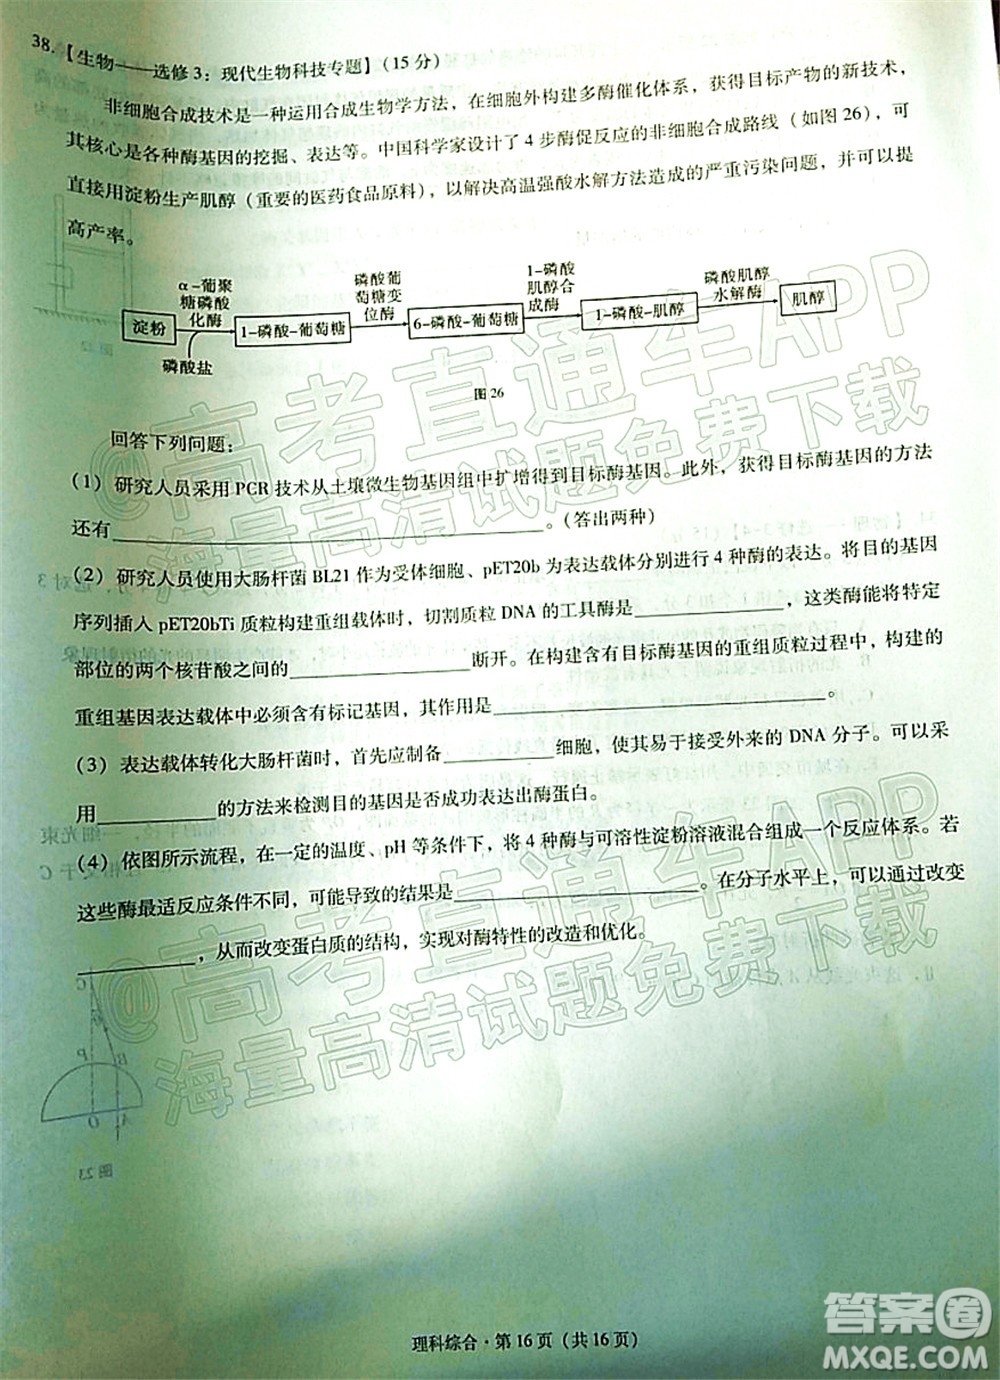 38.【生物——选修 3：现代生物科技专题】（15 分）
非细胞合成技术是一种运用合成生物学方法，在细胞外构建多酶催化体系，获得目标产物的新技术，
其核心是各种酶基因的挖掘、表达等。中国科学家设计了 4 步酶促反应的非细胞合成路线（如图 26），可
直接用淀粉生产肌醇（重要的医药食品原料），以解决高温强酸水解方法造成的严重污染问题，并可以提
高产率。
淀粉
α-葡聚
糖磷酸
化酶
磷酸盐
1-磷酸-葡萄糖
磷酸葡
萄糖变
位酶
6-磷酸-葡萄糖
1-磷酸
肌醇合
成酶
1-磷酸-肌醇
磷酸肌醇
水解酶
肌醇
图 26
回答下列问题：
（1）研究人员采用 PCR 技术从土壤微生物基因组中扩增得到目标酶基因。此外，获得目标酶基因的方法
还有 。（答出两种）
（2）研究人员使用大肠杆菌 BL21 作为受体细胞、pET20b 为表达载体分别进行 4 种酶的表达。将目的基因
序列插入 pET20bTi 质粒构建重组载体时，切割质粒 DNA 的工具酶是 ，这类酶能将特定
部位的两个核苷酸之间的 断开。在构建含有目标酶基因的重组质粒过程中，构建的
重组基因表达载体中必须含有标记基因，其作用是 。
（3）表达载体转化大肠杆菌时，首先应制备 细胞，使其易于接受外来的 DNA 分子。可以采
用 的方法来检测目的基因是否成功表达出酶蛋白。
（4）依图所示流程，在一定的温度、pH 等条件下，将 4 种酶与可溶性淀粉溶液混合组成一个反应体系。若
这些酶最适反应条件不同，可能导致的结果是 。在分子水平上，可以通过改变
，从而改变蛋白质的结构，实现对酶特性的改造和优化。
@高考直通车APP
海量高清试题免费下载
@高考直通车APP
海量高清试题免费下载
图 23
理科综合·第 16 页（共 16 页）
答案圈
MXQE.COM